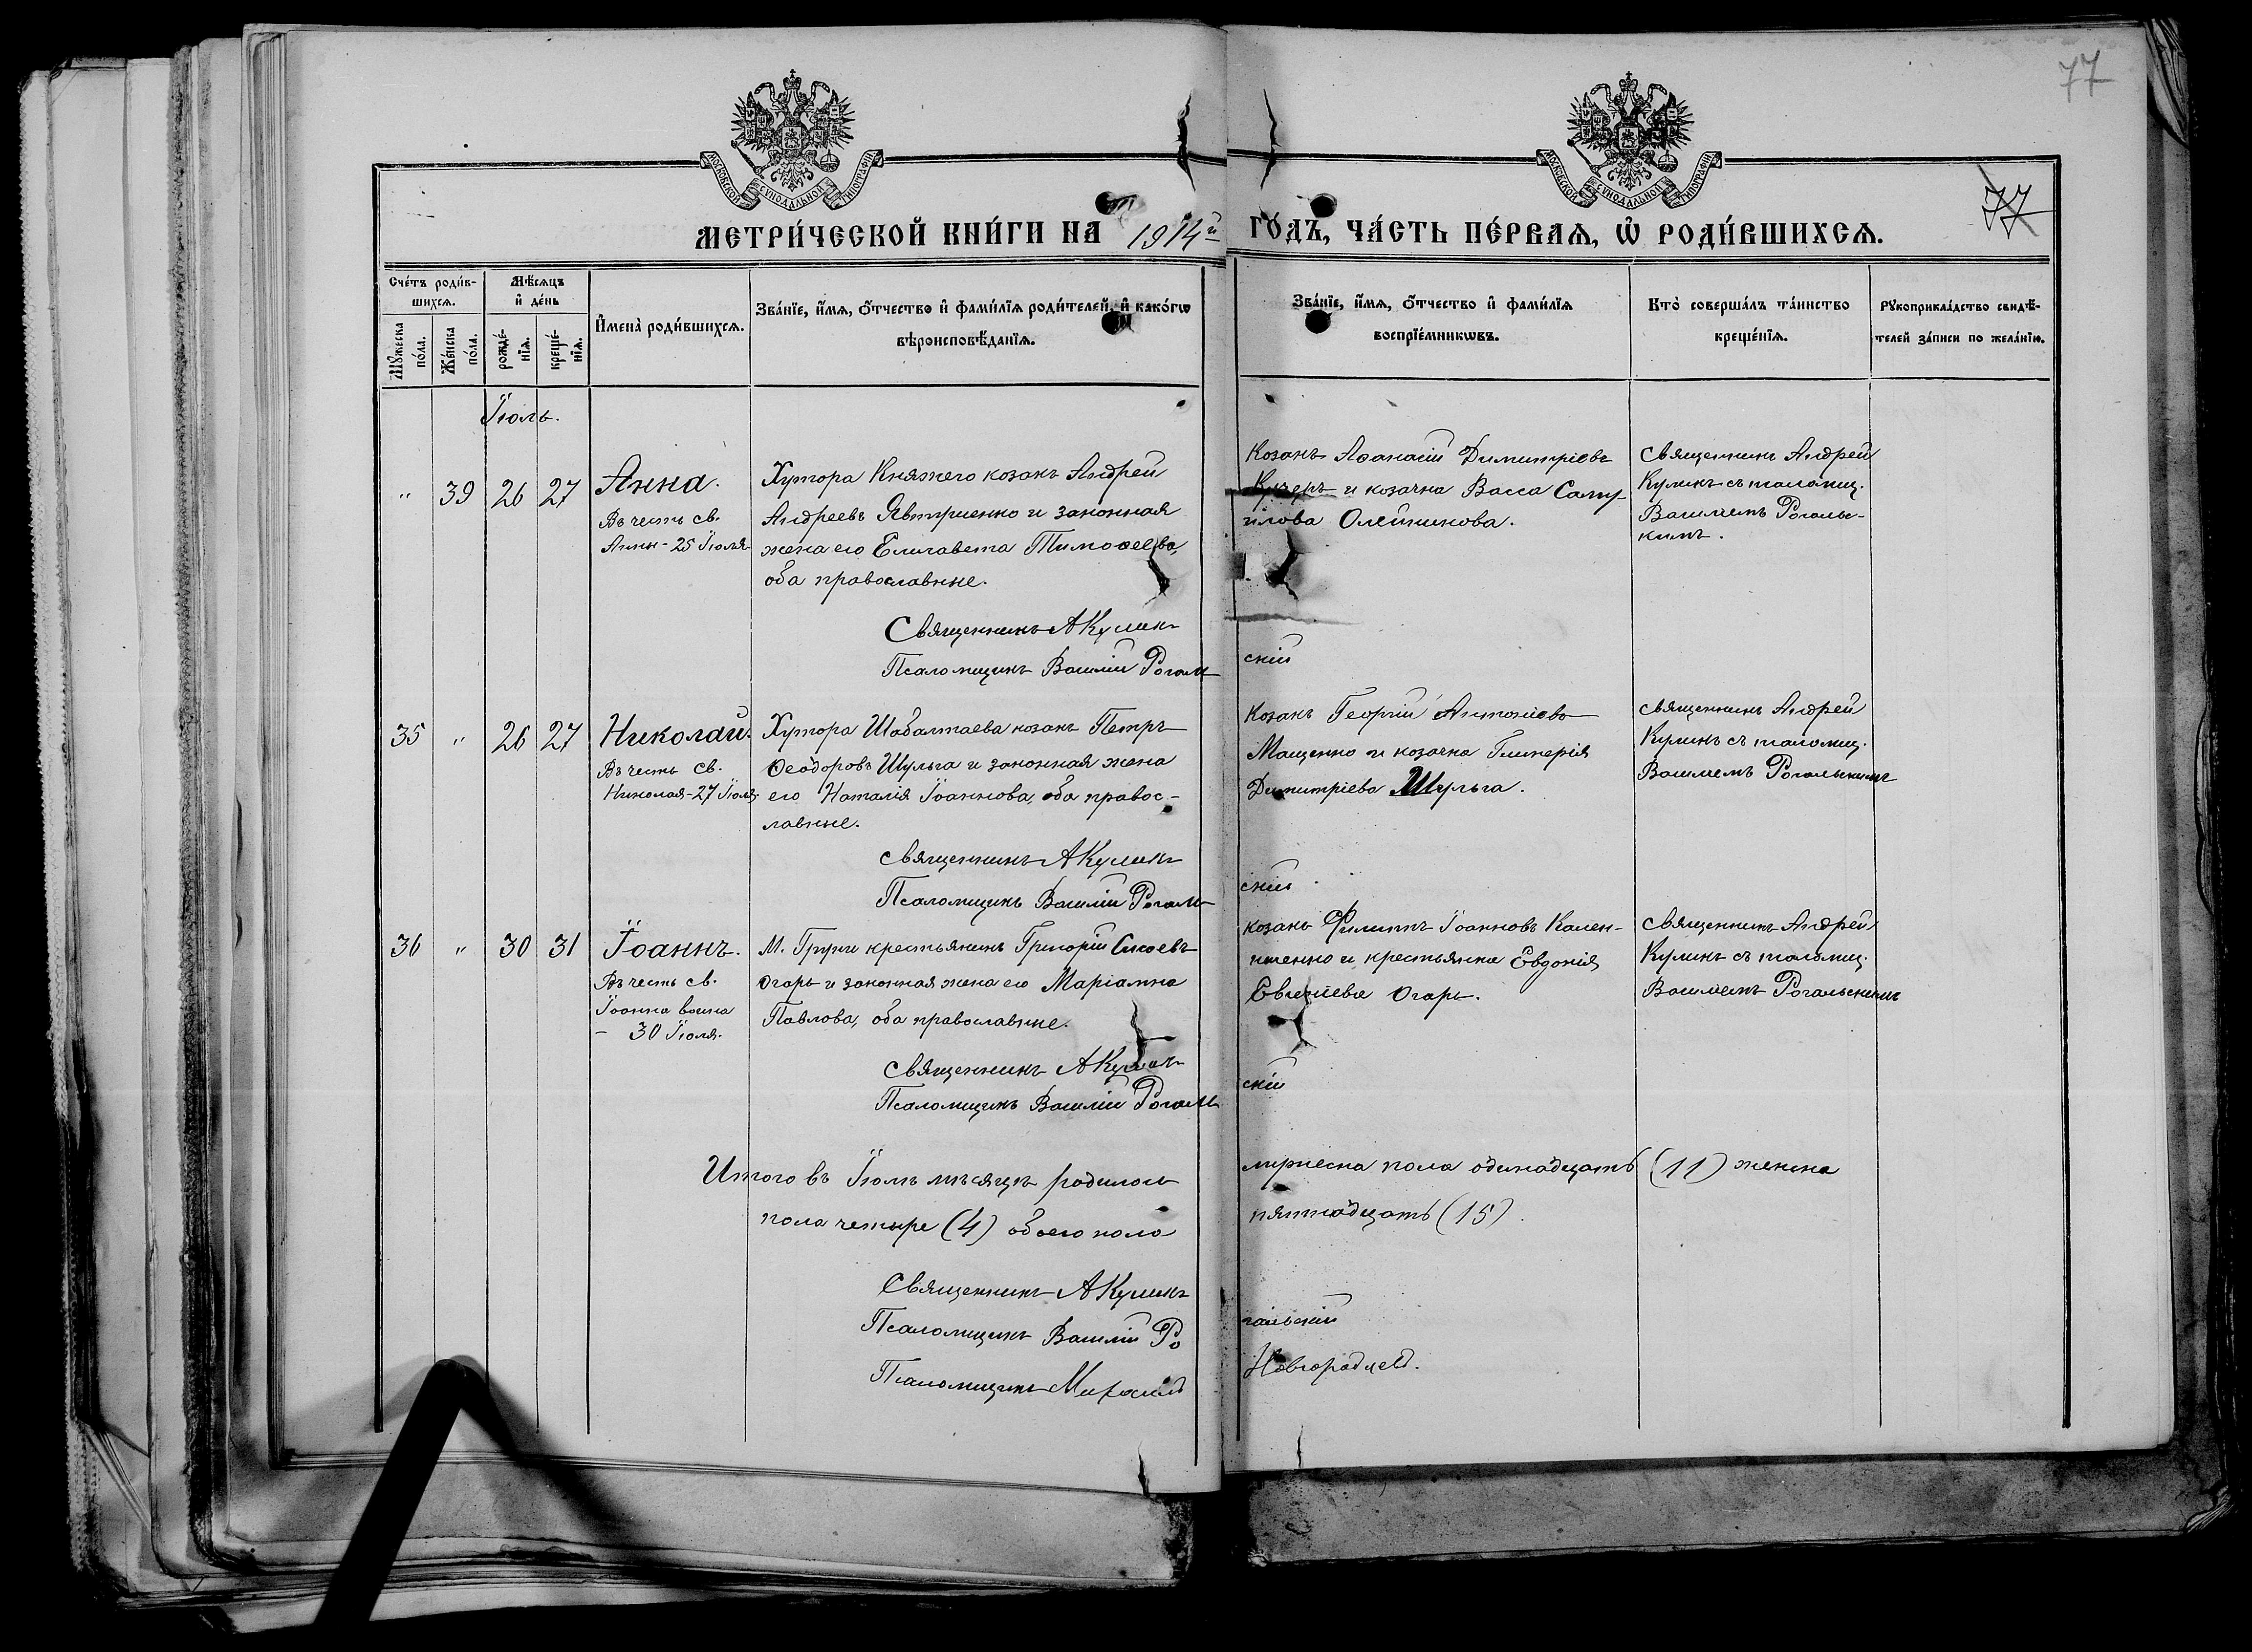 77
МОСКОВСКОЙ СУНОДАЛЬНОЙ ТИПОГРАФІИ
МОСКОВСКОЙ СУНОДАЛЬНОЙ ТИПОГРАФІИ
77
МЕТРИ́ЧЕСКОЙ КНИ́ГИ НА 1914й
ГО́ДЪ, ЧА́СТЬ ПЕ́РВАѦ, Ѿ РОДИ́ВШИХСѦ.
Сче́тъ роди́в-
шихсѧ.
Мꙋ́жеска
по́ла.
Же́нска
по́ла.
Мѣ́сѧцъ
и҆ де́нь
рожде́-
нїѧ.
креще́-
нїѧ.
И҆мена̀ роди́вшихсѧ.
Зва́нїе, и҆́мѧ, ѻ҆́тчество и҆ фами́лїѧ роди́телей, и҆ како́гѡ
вѣроисповѣ́данїѧ.
Зва́нїе, и҆́мѧ, ѻ҆́тчество и҆ фами́лїѧ
воспрїе́мникѡвъ.
Кто̀ соверша́лъ та́инство
креще́нїѧ.
Рꙋкоприкла́дство свидѣ́-
телей за́писи по жела́нїю.
Іюль.
" 39 26 27
Анна.
Въ честь св.
Анны - 25 Іюля
Хутора Княжего козакъ Андрей
Андреевъ Явтушенко и законная
жена его Елисавета Тимоѳеева,
оба православные.
Священникъ А Куликъ
Псаломщикъ Василій Рогаль
скій
Козакъ Аѳанасій Димитріевъ
Кучеръ и козачка Васса Саму
илова Олейникова.
Священникъ Андрей
Куликъ съ псаломщ.
Василіемъ Рогальс-
кимъ.
35 " 26 27
Николай.
Въ честь св.
Николая - 27 Іюля
Хутора Шабалтаева козакъ Петръ
Ѳеодоровъ Шульга и законная жена
его Наталія Іоаннова, оба правос-
лавные.
Священникъ А Куликъ
Псаломщикъ Василій Рогаль
скій
Козакъ Георгій Антоніевъ
Мащенко и козачка Гликерія
Димитріева Шульга.
Священникъ Андрей
Куликъ съ псаломщ.
Василіемъ Рогальскимъ
36 " 30 31
Іоаннъ.
Въ честь св.
Іоанна воина
- 30 Іюля.
М. Груни крестьянинъ Григорій Сисоевъ
Огарь и законная жена его Маріамна
Павлова, оба православные.
Священникъ А Куликъ
Псаломщикъ Василій Рогаль
скій
козакъ Филиппъ Іоанновъ Кален-
иченко и крестьянка Евдокія
Евгеніева Огарь.
Священникъ Андрей
Куликъ съ псаломщ.
Василіемъ Рогальскимъ
Итого въ Іюлѣ мѣсяцѣ родилось мужеска пола одинадцать (11) женска
пола четыре (4) обоего пола пятнадцать (15).
Священникъ А Куликъ
Псаломщикъ Василій Рогальскій
Псаломщикъ Михаилъ Новгородцевъ.